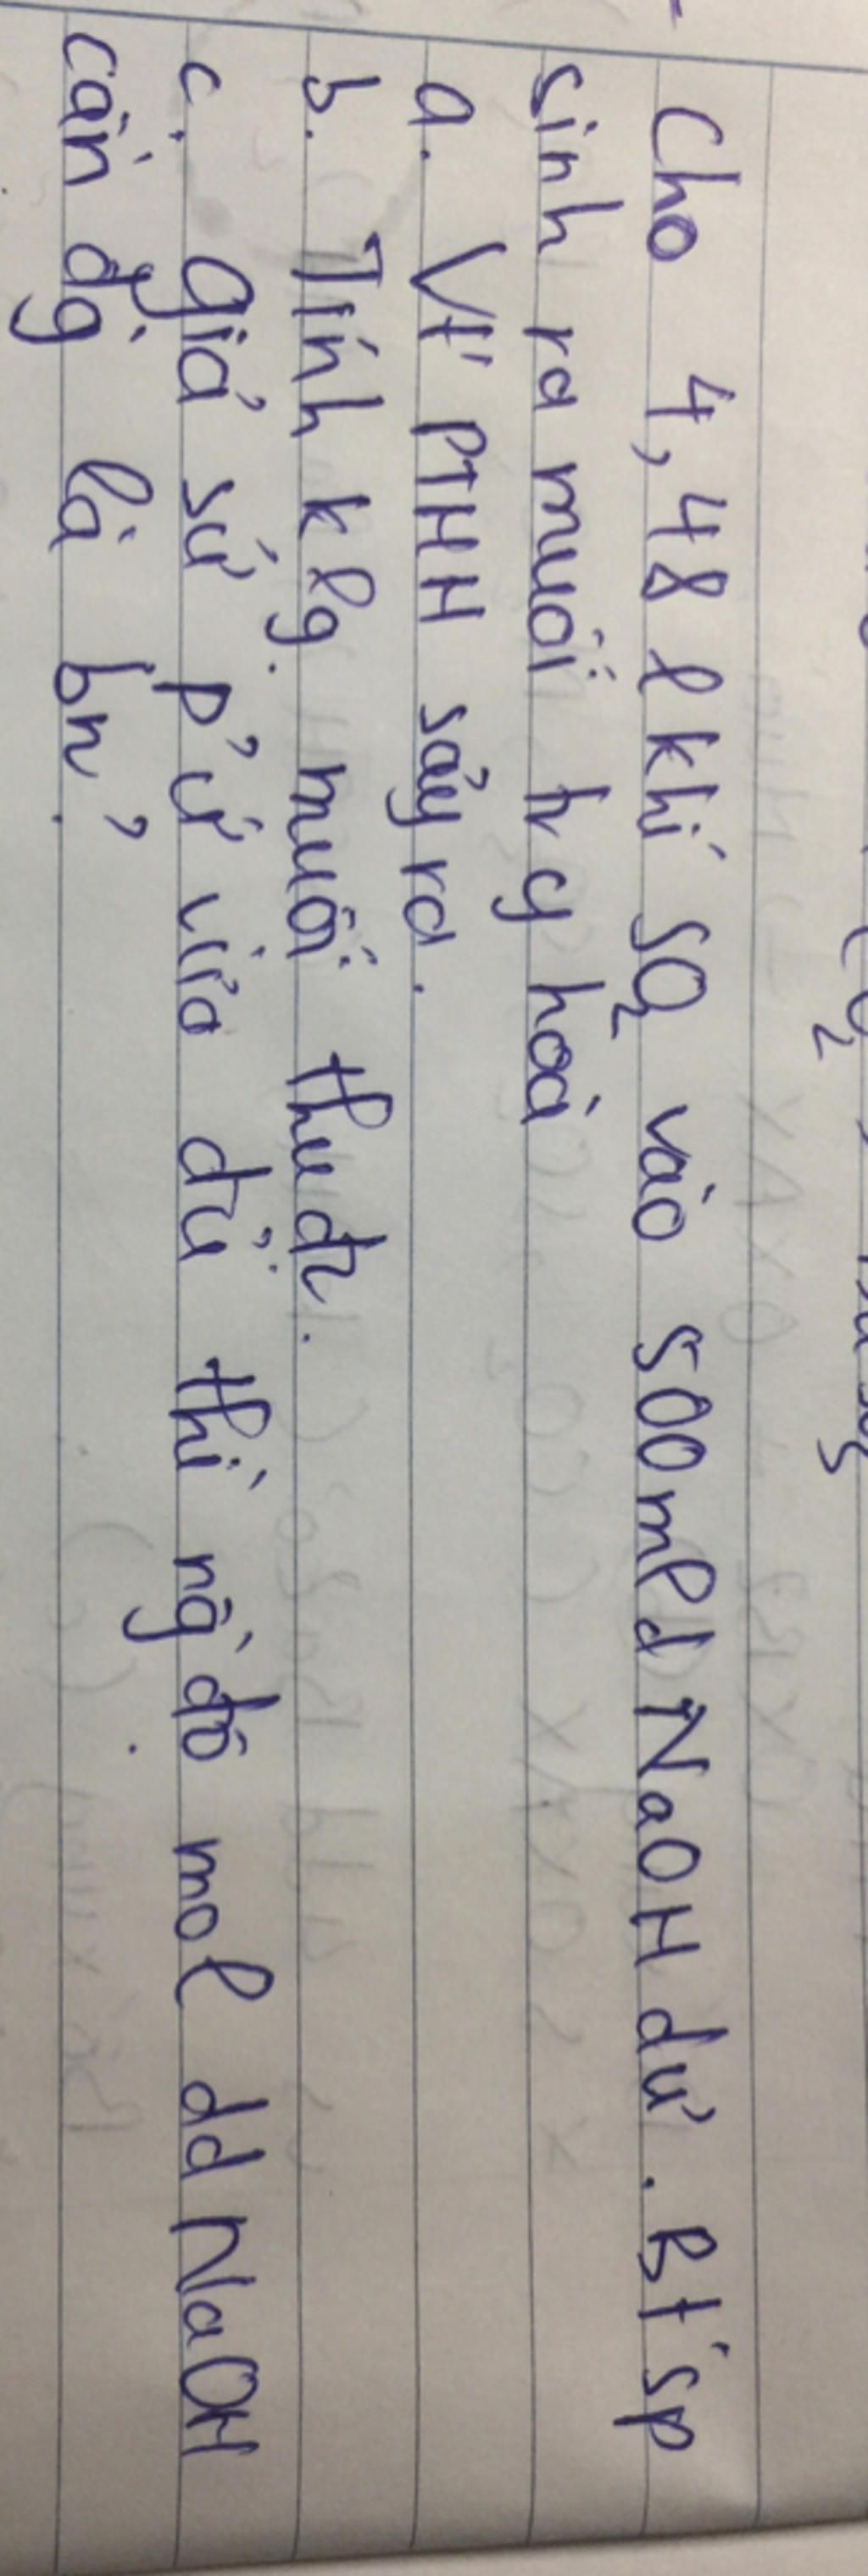 Cho 4,48 l khí SO2 vào 500ml d NaOH dư. Bt' sp
sinh ra muối tr g hoà
a. Vt' PTHH sảy ra.
b. Tính klg muối thu đc.
c. giả sử p'ứ vừa đủ thì ng̀ độ mol dd NaOH
cần dg̀ là bn?